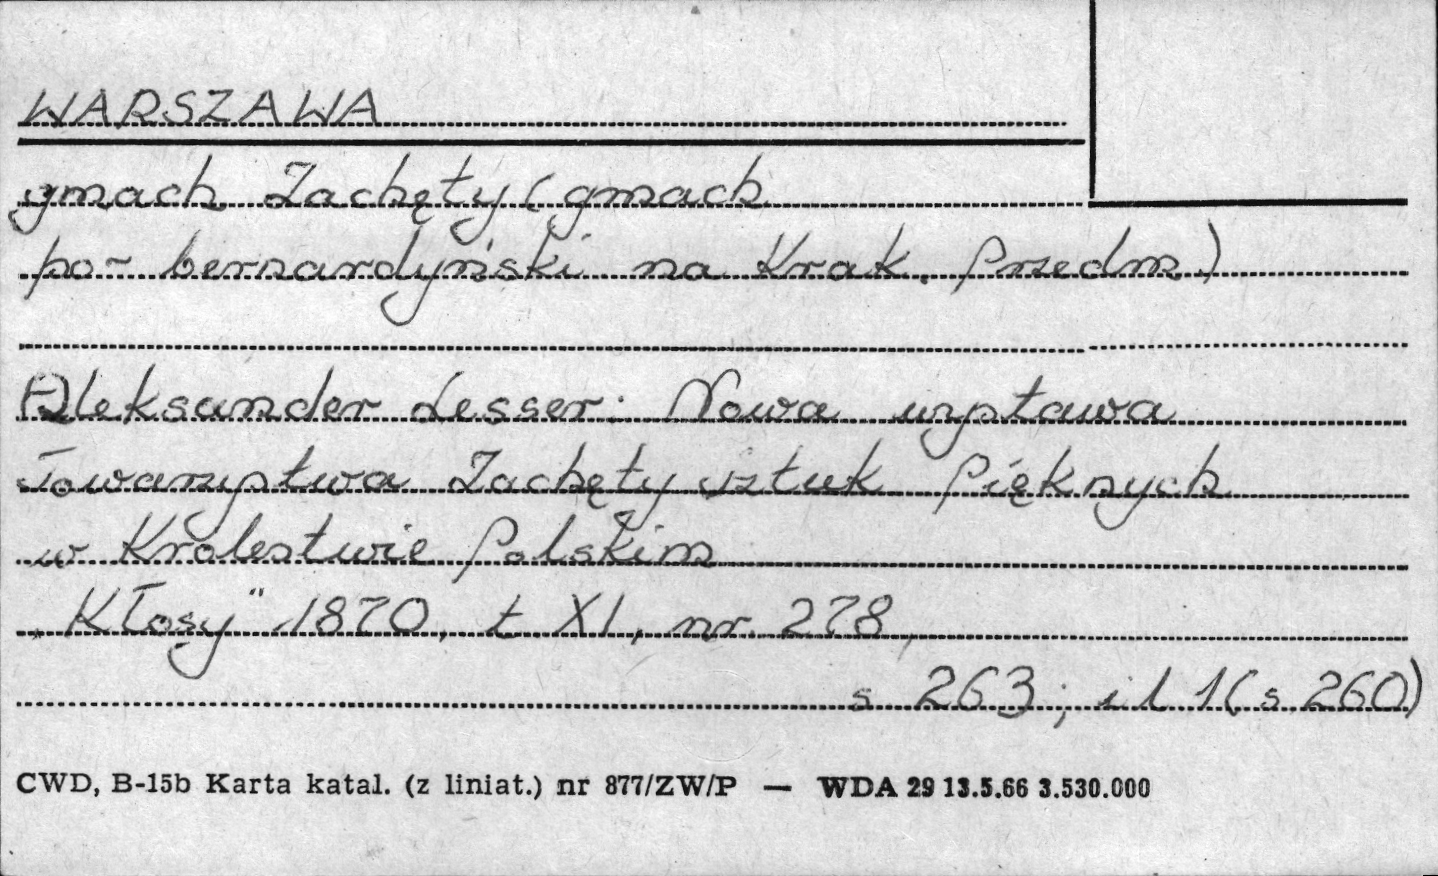 WARSZAWA
gmach Zachęty (gmach
po- bernardyński na Krak. Przedm.)
Aleksander Lesser: Nowa wystawa
Towarzystwa Zachęty Sztuk Pięknych
w Królestwie Polskim
"Kłosy" 1870, t. XI, nr. 278,
s 263; il 1 (s 260)
CWD, B-15b Karta katal. (z liniat.) nr 877/ZW/P — WDA 29 13.5.66 3.530.000